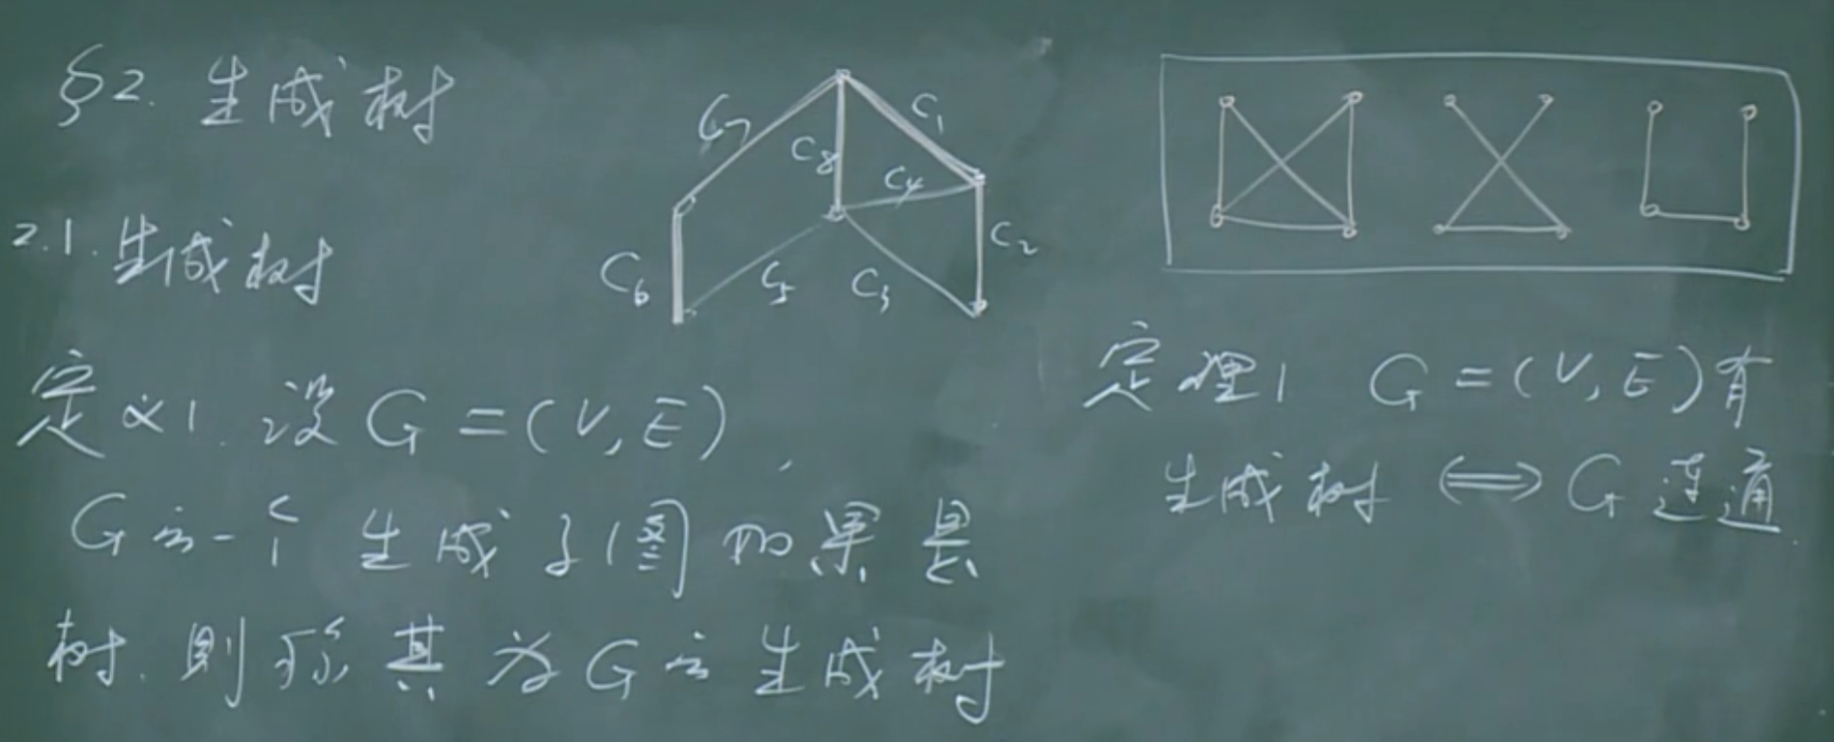 §2. 生成树
2.1. 生成树
C7
C8
C1
C4
C2
C6
C5
C3
定义1. 设 G = (V, E),
G之一个生成子图如果是
树. 则称其为G之生成树
定理1 G = (V, E) 有
生成树 ⟺ G 连通.